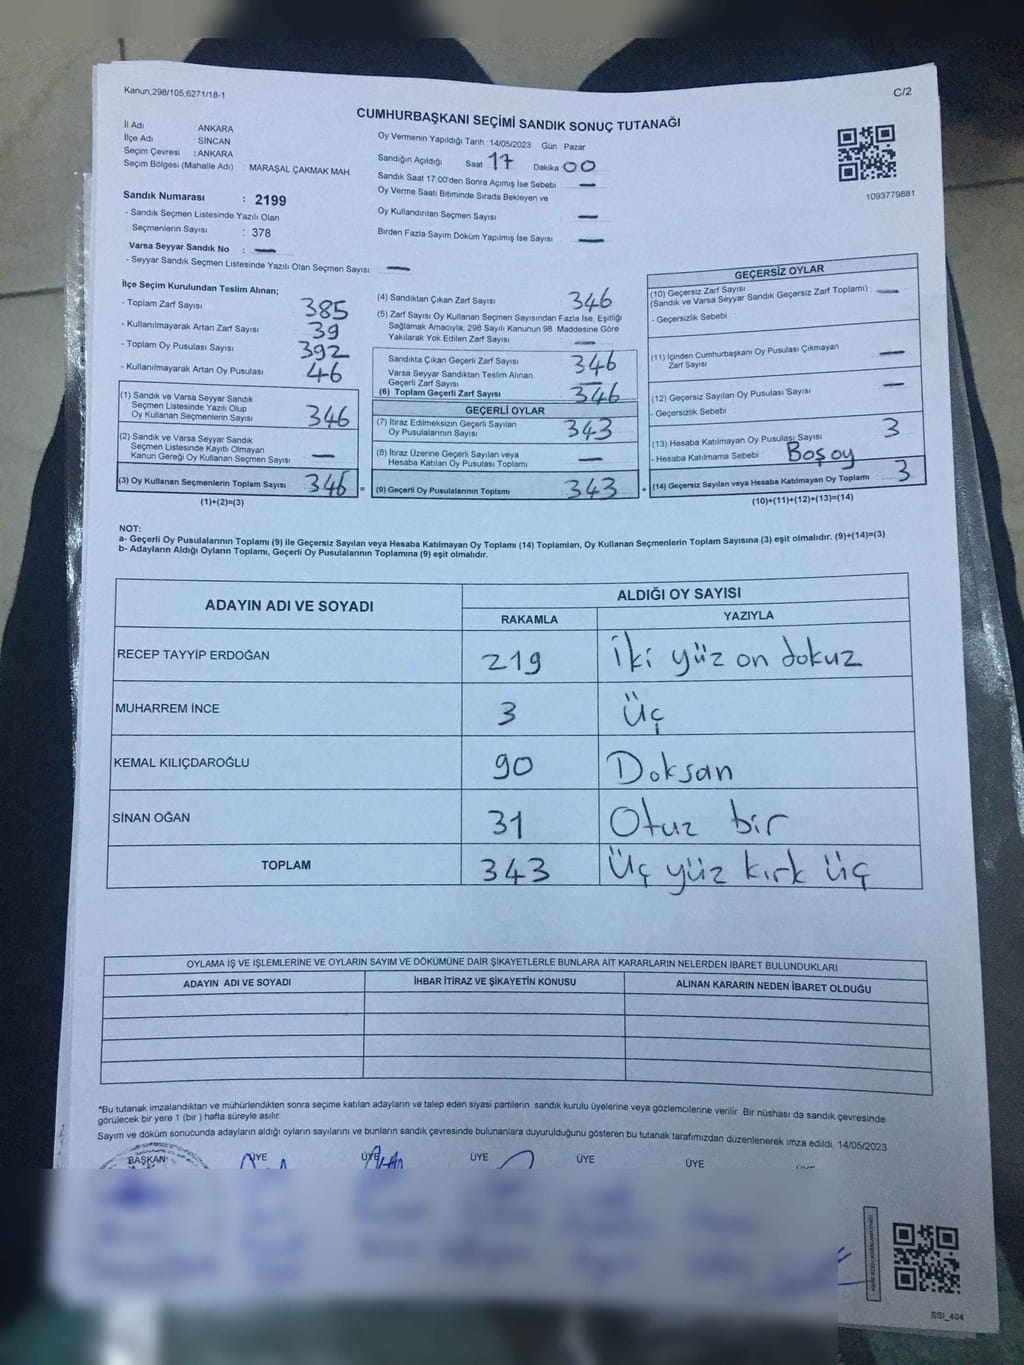 Kanun,298/105,6271/18-1
C/2
CUMHURBAŞKANI SEÇİMİ SANDIK SONUÇ TUTANAĞI
İl Adı ANKARA
İlçe Adı SİNCAN
Seçim Çevresi : ANKARA
Seçim Bölgesi (Mahalle Adı) : MARAŞAL ÇAKMAK MAH.
Sandık Numarası : 2199
- Sandık Seçmen Listesinde Yazılı Olan
Seçmenlerin Sayısı : 378
Varsa Seyyar Sandık No : —
- Seyyar Sandık Seçmen Listesinde Yazılı Olan Seçmen Sayısı: —
Oy Vermenin Yapıldığı Tarih : 14/05/2023 Gün Pazar
Sandığın Açıldığı Saat 17 Dakika 00
Sandık Saat 17:00'den Sonra Açımış İse Sebebi —
Oy Verme Saati Bitiminde Sırada Bekleyen ve
Oy Kullandırılan Seçmen Sayısı —
Birden Fazla Sayım Döküm Yapılmış İse Sayısı —
1093779881
İlçe Seçim Kurulundan Teslim Alınan;
- Toplam Zarf Sayısı 385
- Kullanılmayarak Artan Zarf Sayısı 39
- Toplam Oy Pusulası Sayısı 392
- Kullanılmayarak Artan Oy Pusulası 46
(1) Sandık ve Varsa Seyyar Sandık
Seçmen Listesinde Yazılı Olup
Oy Kullanan Seçmenlerin Sayısı 346
(2) Sandık ve Varsa Seyyar Sandık
Seçmen Listesinde Kayıtlı Olmayan
Kanun Gereği Oy Kullanan Seçmen Sayısı —
(3) Oy Kullanan Seçmenlerin Toplam Sayısı 346 =
(1)+(2)=(3)
(4) Sandıktan Çıkan Zarf Sayısı 346
(5) Zarf Sayısı Oy Kullanan Seçmen Sayısından Fazla İse, Eşitliği
Sağlamak Amacıyla, 298 Sayılı Kanunun 98. Maddesine Göre
Yakılarak Yok Edilen Zarf Sayısı —
Sandıkta Çıkan Geçerli Zarf Sayısı 346
Varsa Seyyar Sandıktan Teslim Alınan
Geçerli Zarf Sayısı —
(6) Toplam Geçerli Zarf Sayısı 346
GEÇERLİ OYLAR
(7) İtiraz Edilmeksizin Geçerli Sayılan
Oy Pusulalarının Sayısı 343
(8) İtiraz Üzerine Geçerli Sayılan veya
Hesaba Katılan Oy Pusulası Toplamı —
(9) Geçerli Oy Pusulalarının Toplamı 343 +
GEÇERSİZ OYLAR
(10) Geçersiz Zarf Sayısı
(Sandık ve Varsa Seyyar Sandık Geçersiz Zarf Toplamı) : —
- Geçersizlik Sebebi :
(11) İçinden Cumhurbaşkanı Oy Pusulası Çıkmayan
Zarf Sayısı —
(12) Geçersiz Sayılan Oy Pusulası Sayısı —
- Geçersizlik Sebebi
(13) Hesaba Katılmayan Oy Pusulası Sayısı 3
- Hesaba Katılmama Sebebi Boş oy
(14) Geçersiz Sayılan veya Hesaba Katılmayan Oy Toplamı 3
(10)+(11)+(12)+(13)=(14)
NOT:
a- Geçerli Oy Pusulalarının Toplamı (9) ile Geçersiz Sayılan veya Hesaba Katılmayan Oy Toplamı (14) Toplamları, Oy Kullanan Seçmenlerin Toplam Sayısına (3) eşit olmalıdır. (9)+(14)=(3)
b- Adayların Aldığı Oyların Toplamı, Geçerli Oy Pusulalarının Toplamına (9) eşit olmalıdır.
ADAYIN ADI VE SOYADI
ALDIĞI OY SAYISI
RAKAMLA YAZIYLA
RECEP TAYYİP ERDOĞAN 219 İki yüz on dokuz
MUHARREM İNCE 3 Üç
KEMAL KILIÇDAROĞLU 90 Doksan
SİNAN OĞAN 31 Otuz bir
TOPLAM 343 Üç yüz kırk üç
OYLAMA İŞ VE İŞLEMLERİNE VE OYLARIN SAYIM VE DÖKÜMÜNE DAİR ŞİKAYETLERLE BUNLARA AİT KARARLARIN NELERDEN İBARET BULUNDUKLARI
ADAYIN ADI VE SOYADI İHBAR İTİRAZ VE ŞİKAYETİN KONUSU ALINAN KARARIN NEDEN İBARET OLDUĞU
*Bu tutanak imzalandıktan ve mühürlendikten sonra seçime katılan adayların ve talep eden siyasi partilerin sandık kurulu üyelerine veya gözlemcilerine verilir. Bir nüshası da sandık çevresinde
görülecek bir yere 1 (bir ) hafta süreyle asılır.
Sayım ve döküm sonucunda adayların aldığı oyların sayılarını ve bunların sandık çevresinde bulunanlara duyurulduğunu gösteren bu tutanak tarafımızdan düzenlenerek imza edildi. 14/05/2023
BAŞKAN ÜYE ÜYE ÜYE ÜYE ÜYE
SSİ_404